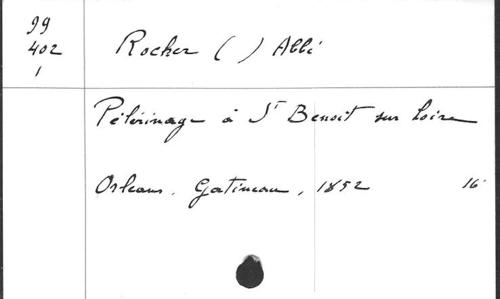 99
402
1
Rocher ( ) Abbé
Pélérinage à St Benoit sur Loire
Orléans. Gatineau, 1852 16